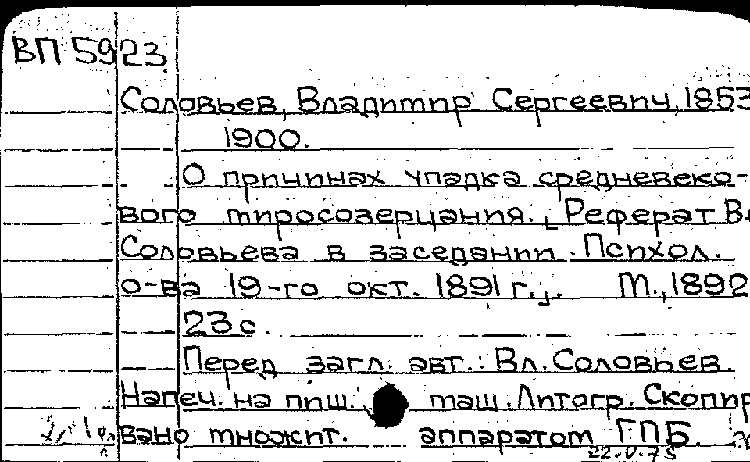 ВП 5923
Соловьев, Владимир Сергеевич, 1853
1900.
О причинах упадка средневеко-
вого миросозерцания. [Реферат Вл
Соловьева в заседании Психол.
о-ва 19-го окт. 1891 г.]. М., 1892
23 с.
Перед загл. авт.: Вл. Соловьев.
Напеч. на пиш. маш. Литогр. Скопир
вано множит. аппаратом ГПБ.
22.V.75